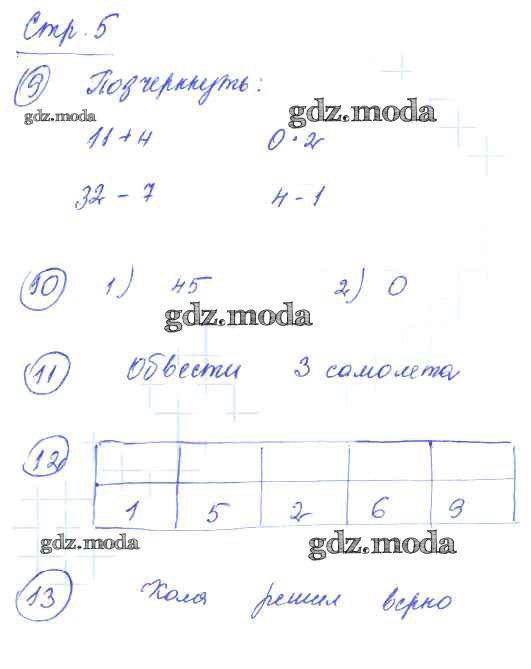 Стр. 5
9 Подчеркнуть:
gdz.moda
gdz.moda
11+4 0·2
32-7 4-1
10 1) 45 2) 0
gdz.moda
11 Обвести 3 самолета
12
1 5 2 6 9
gdz.moda gdz.moda
13 Коля решил верно